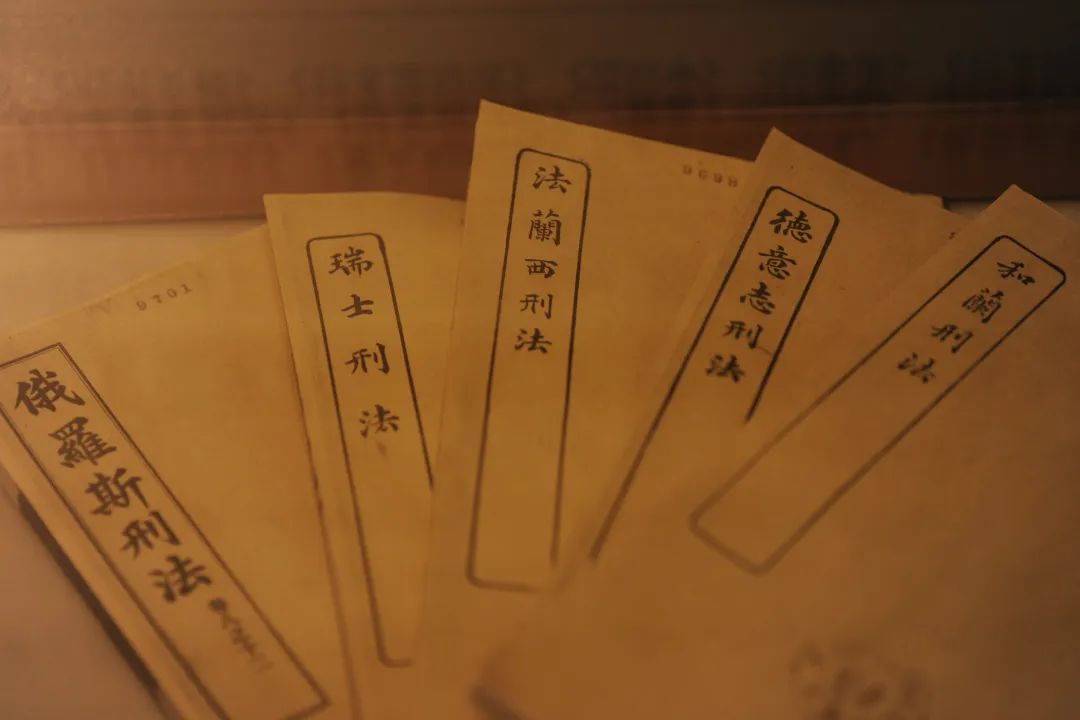 俄羅斯刑法
9701
瑞士刑法
法蘭西刑法
9698
德意志刑法
和蘭刑法